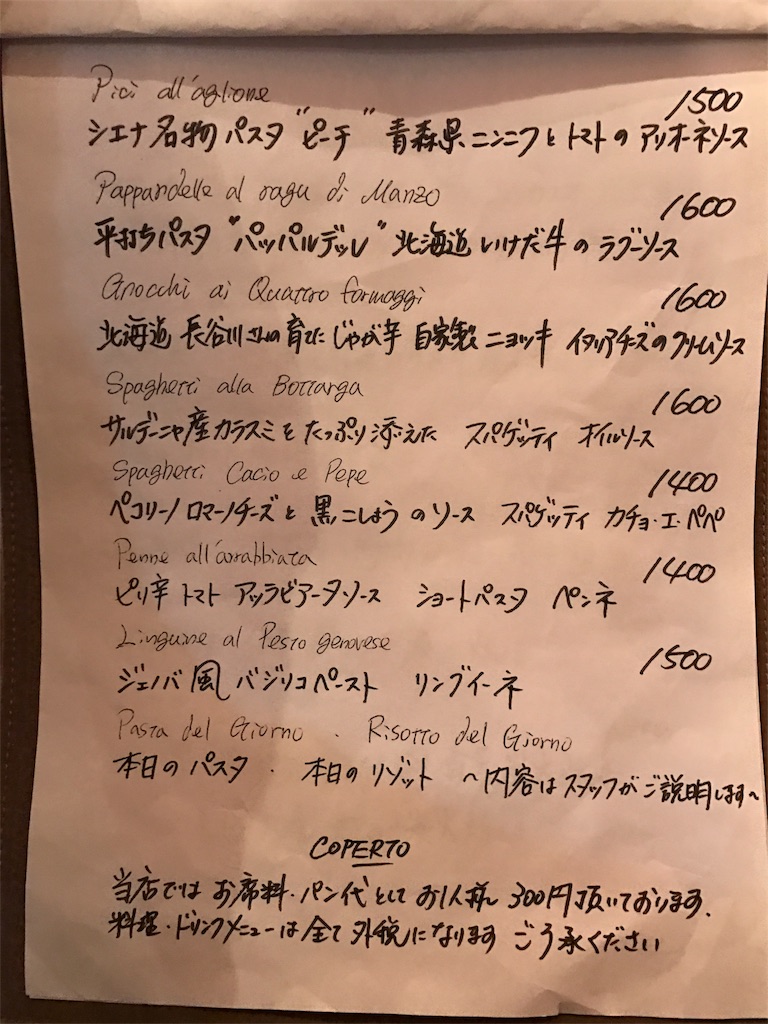 Pici all'aglione 1500
シエナ名物パスタ "ピーチ" 青森県ニンニクとトマトのアリオーネソース
Pappardelle al ragu di Manzo 1600
平打ちパスタ "パッパルデッレ" 北海道いけだ牛のラグーソース
Gnocchi ai Quattro formaggi 1600
北海道 長谷川さんの育てたじゃが芋 自家製ニョッキ イタリアチーズのクリームソース
Spaghetti alla Bottarga 1600
サルデーニャ産カラスミをたっぷり添えた スパゲッティ オイルソース
Spaghetti Cacio e Pepe 1400
ペコリーノロマーノチーズと黒こしょうのソース スパゲッティ カチョ・エ・ペペ
Penne all'arrabbiata 1400
ピリ辛トマト アッラビアータソース ショートパスタ ペンネ
Linguine al Pesto genovese 1500
ジェノバ風バジリコペースト リングイーネ
Pasta del Giorno . Risotto del Giorno
本日のパスタ . 本日のリゾット ~内容はスタッフがご説明します~
COPERTO
当店ではお席料・パン代としてお1人様 300円頂いております.
料理・ドリンクメニューは全て外税になります ご了承ください